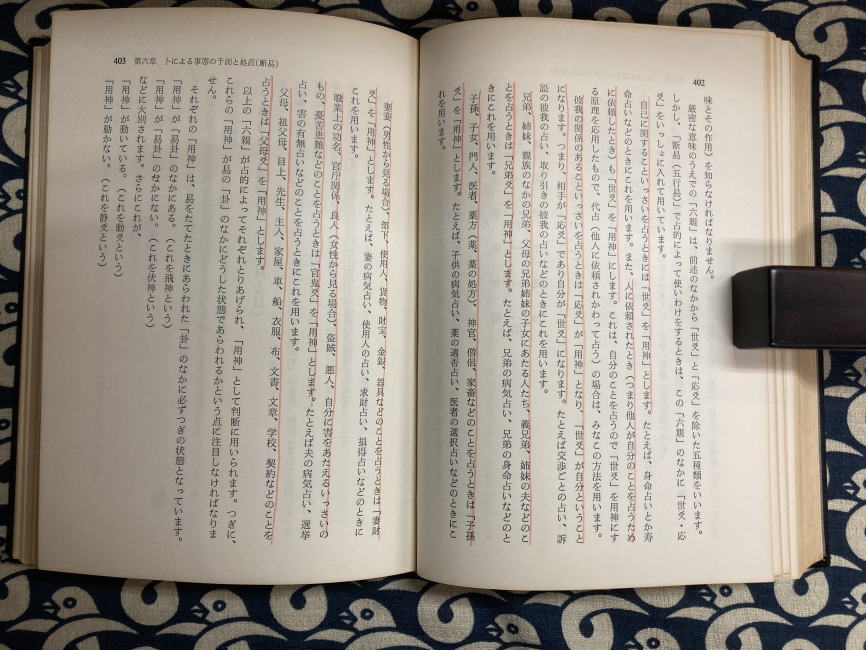 402
味とその作用）を知らなければなりません。
厳密な意味のうえでの「六親」は、前述のなかから「世爻」と「応爻」を除いた五種類をいいます。
しかし、「断易（五行易）」で占的によって使いわけをするときは、この「六親」のなかに「世爻・応
爻」をいっしょに入れて用いています。
自己に関することいっさいを占うときには「世爻」を「用神」とします。たとえば、身命占いとか寿
命占いなどのときにこれを用います。また、人に依頼されたとき（つまり他人が自分のことを占うため
に依頼したとき）も「世爻」を「用神」にします。これは、自分のことを占うので「世爻」を用神にす
る原理を応用したもので、代占（他人に依頼されかわって占う）の場合は、みなこの方法を用います。
彼我の関係のあることいっさいを占うときは「応爻」が「用神」となり、「世爻」が自分ということ
になります。つまり、相手が「応爻」であり自分が「世爻」になります。たとえば交渉ごとの占い、訴
訟の彼我の占い、取り引きの彼我の占いなどのときにこれを用います。
兄弟、姉妹、親族のなかの兄弟、父母の兄弟姉妹の子女にあたる人たち、義兄弟、姉妹の夫などのこ
とを占うときは「兄弟爻」を「用神」とします。たとえば、兄弟の病気占い、兄弟の身命占いなどのと
きにこれを用います。
子孫、子女、門人、医者、薬方（薬、薬の処方）、神官、僧侶、家畜などのことを占うときは「子孫
爻」を「用神」とします。たとえば、子供の病気占い、薬の適否占い、医者の選択占いなどのときにこ
れを用います。
403 第六章 卜による事態の予測と処置（断易）
妻妾（男性から見る場合）、部下、使用人、貨物、財宝、金銀、器具などのことを占うときは「妻財
爻」を「用神」とします。たとえば、妻の病気占い、使用人の占い、求財占い、損得占いなどのときに
これを用います。
職業上の功名、官庁関係、良人（女性から見る場合）、盗賊、悪人、自分に害をあたえるいっさいの
もの、憂苦患難などのことを占うときは「官鬼爻」を「用神」とします。たとえば夫の病気占い、選挙
占い、害の有無占いなどのことを占うときにこれを用います。
父母、祖父母、目上、先生、主人、家屋、車、船、衣服、布、文書、文章、学校、契約などのことを
占うときは「父母爻」を「用神」とします。
以上の「六親」が占的によってそれぞれとりあげられ、「用神」として判断に用いられます。つぎに、
これらの「用神」が易の「卦」のなかにどうした状態であらわれるかという点に注目しなければなりま
せん。
それぞれの「用神」は、易をたてたときにあらわれた「卦」のなかに必ずつぎの状態となっています。
「用神」が「易卦」のなかにある。（これを飛神という）
「用神」が「易卦」のなかにない。（これを伏神という）
などに大別されます。さらにこれが、
「用神」が動いている。（これを動爻という）
「用神」が動かない。（これを静爻という）